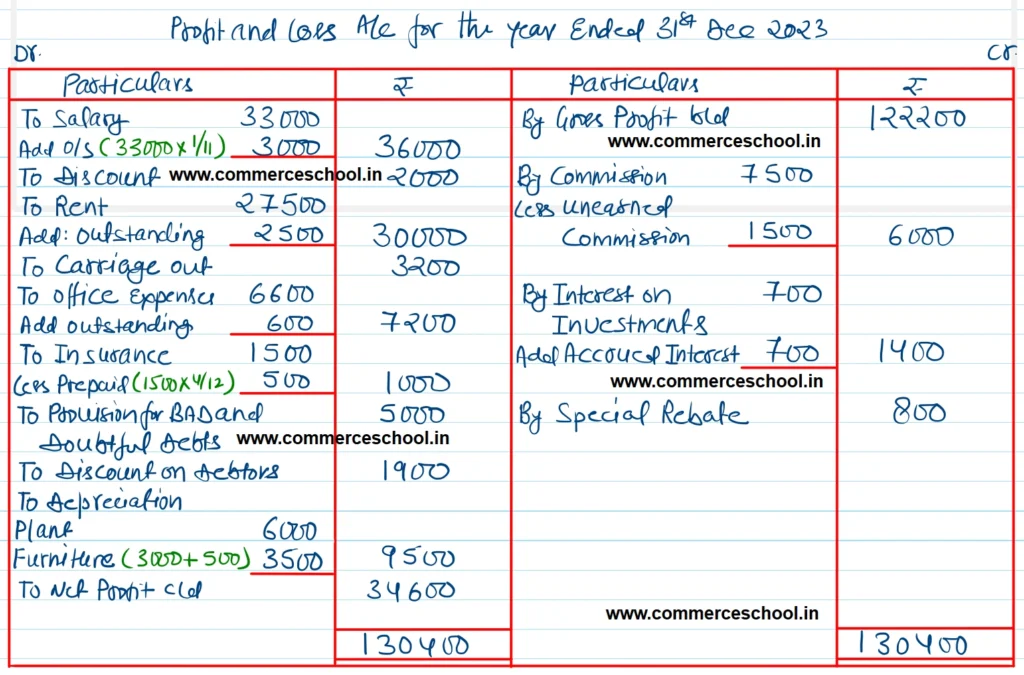 Profit and Loss A/c for the year Ended 31st Dec 2023
Dr. Cr.
Particulars ₹ Particulars ₹
To Salary 33000 By Gross Profit b/d 122200
www.commerceschool.in
Add O/S (33000x1/11) 3000 36000
To Discount www.commerceschool.in 2000 By Commission 7500
To Rent 27500 Less Unearned
Add: Outstanding 2500 30000 Commission 1500 6000
To Carriage out 3200
To Office Expenses 6600 By Interest on 700
Add outstanding 600 7200 Investments
To Insurance 1500 Add Accrued Interest 700 1400
Less Prepaid (1500x4/12) 500 1000 www.commerceschool.in
To Provision for BAD and 5000 By Special Rebate 800
Doubtful Debts www.commerceschool.in
To Discount on Debtors 1900
To Depreciation
Plant 6000
Furniture (3000+500) 3500 9500
To Net Profit c/d 34600
www.commerceschool.in
130400 130400